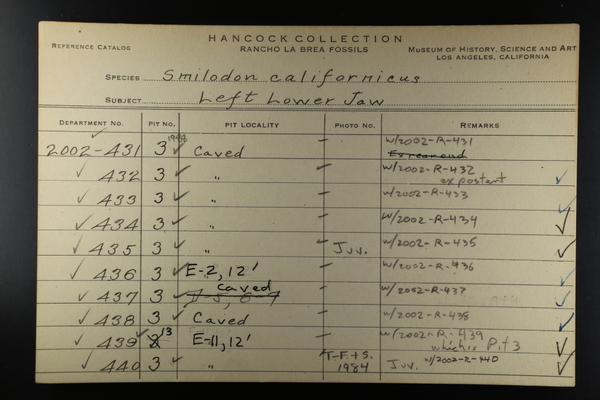 HANCOCK COLLECTION
REFERENCE CATALOG RANCHO LA BREA FOSSILS MUSEUM OF HISTORY, SCIENCE AND ART
LOS ANGELES, CALIFORNIA
SPECIES Smilodon californicus
SUBJECT Left Lower Jaw
DEPARTMENT NO. PIT NO. PIT LOCALITY PHOTO NO. REMARKS
1988 w/2002-R-431
2002-431 3 ✓ Caved –
✓ 432 3 ✓ " – w/2002-R-432
expostant ✓
✓ 433 3 ✓ " – w/2002-R-433
✓ 434 3 ✓ " – w/2002-R-434 ✓
✓ 435 3 ✓ " – Juv. w/2002-R-435 ✓
✓ 436 3 ✓ E-2, 12' – w/2002-R-436 ✓
caved
✓ 437 3 ✓ – w/2002-R-437 ✓
✓ 438 3 ✓ Caved – w/2002-R-438 ✓
✓ 439 ✓ 3 13 E-11, 12' – w/2002-R-439
which is Pit 3 ✓
✓ 440 3 ✓ " T-F+S. Juv. w/2002-R-440 ✓
1984